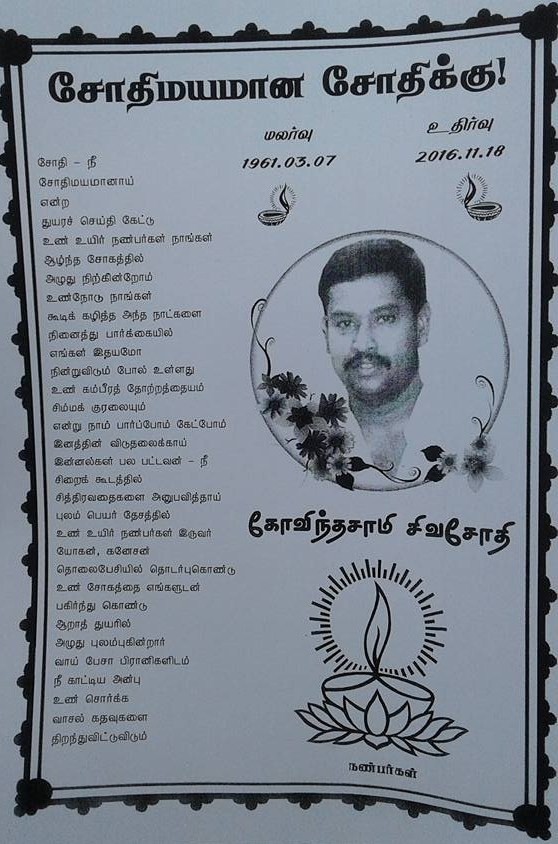 சோதிமயமான சோதிக்கு!
மலர்வு
1961.03.07
உதிர்வு
2016.11.18
சோதி - நீ
சோதிமயமானாய்
என்ற
துயரச் செய்தி கேட்டு
உண் உயிர் நண்பர்கள் நாங்கள்
ஆழ்ந்த சோகத்தில்
அழுது நிற்கின்றோம்
உண்நோடு நாங்கள்
கூடிக் கழித்த அந்த நாட்களை
நினைத்து பார்க்கையில்
எங்கள் இதயமோ
நின்றுவிடும் போல் உள்ளது
உண் கம்பீரத் தோற்றத்தையம்
சிம்மக் குரலையும்
என்று நாம் பார்ப்போம் கேட்போம்
இனத்தின் விடுதலைக்காய்
இன்னல்கள் பல பட்டவன் - நீ
சிறைக் கூடத்தில்
சித்திரவதைகளை அனுபவித்தாய்
புலம் பெயர் தேசத்தில்
உண் உயிர் நண்பர்கள் இருவர்
யோகன், கனேசன்
தொலைபேசியில் தொடர்புகொண்டு
உண் சோகத்தை எங்களுடன்
பகிர்ந்து கொண்டு
ஆறாத் துயரில்
அழுது புலம்புகின்றார்
வாய் பேசா பிரானிகளிடம்
நீ காட்டிய அன்பு
உண் சொர்க்க
வாசல் கதவுகளை
திறந்துவிட்டுவிடும்
கோவிந்தசாமி சிவசோதி
நண்பர்கள்